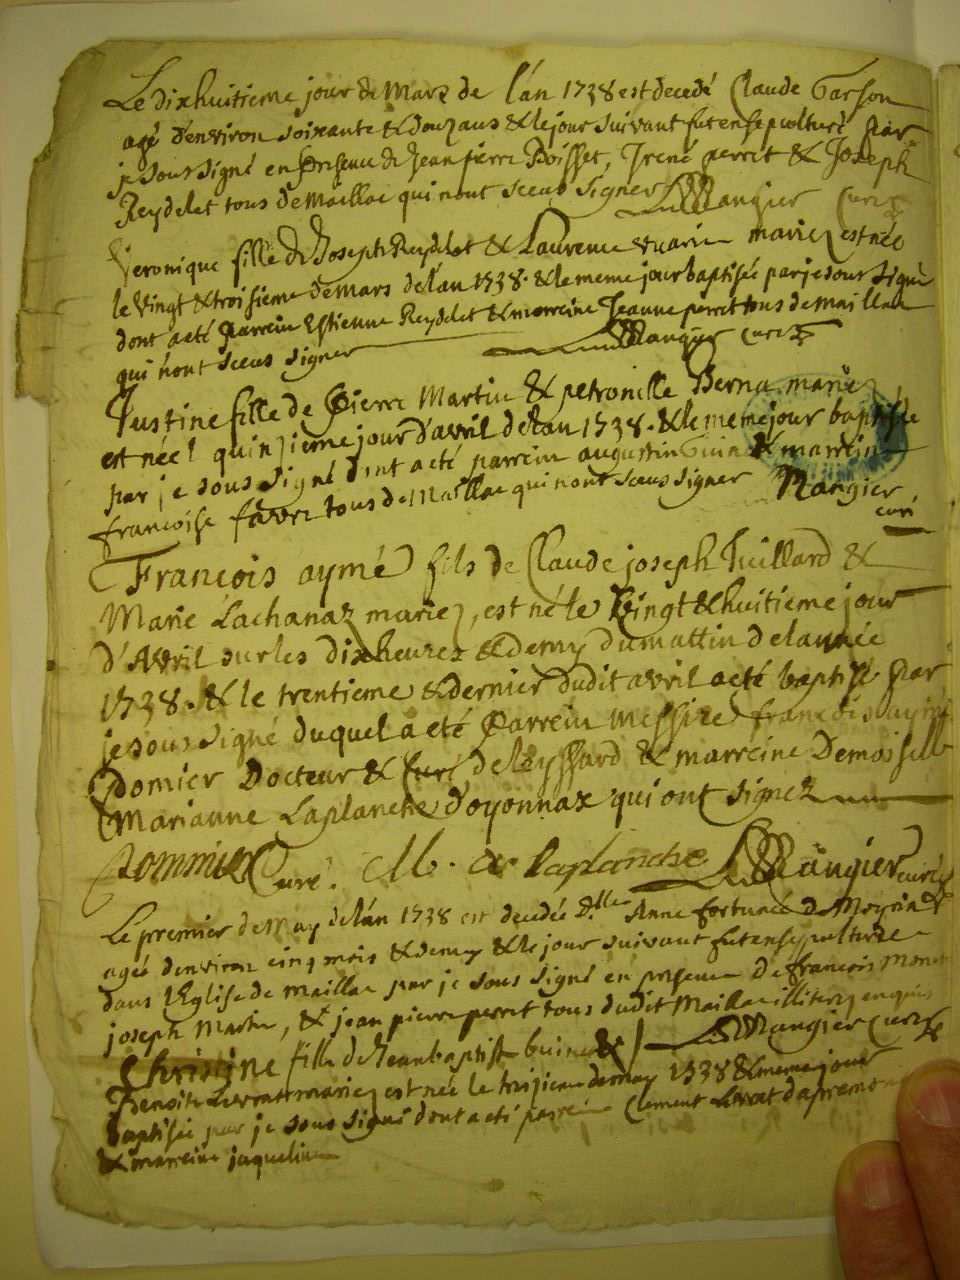 Le dixhuitieme jour de Mars de l'an 1738 est decedé Claude Garson
agé d'environ soixante & douz ans & le jour suivant fut ensepulturé par
je sous signé en presence de Jean pierre Boisset, Irené perret & Joseph
Reydelet tous de Maillac qui n'ont sceus signer Mangier Curé
Veronique fille de Joseph Reydelet & Laurence mariez est née
le vingt & troisieme de mars de l'an 1738. & le meme jour baptisée par je sous signé
dont a eté parrein Estienne Reydelet & marreine Jeanne perret tous de maillac
qui n'ont sceus signer Mangier curé
Justine fille de Pierre Martin & petronille Berna mariez
est née l quinzieme jour d'avril de l'an 1738. & le meme jour baptisée
par je sous signé dont a eté parrein augustin & marreine
francoise favre tous de Maillac qui n'ont sceus signer Mangier
curé
Francois aymé fils de Claude joseph Juillard &
Marie Lachanaz mariez, est né le Vingt & huitieme jour
d'Avril sur les dix heures & demy du mattin de l'année
1738. & le trentieme & dernier dudit avril a eté baptisé par
je sous signé duquel a eté parrein Messire francois aymé
Domier Docteur & Curé de leyssard & marreine Demoiselle
Marianne Laplanche d'oyonnax qui ont signez
Curé. M. de laplanche Mangier curé
Le premier de May de l'an 1738 est decedée d.lle Anne fortunée de Moyria
agée d'environ cinq mois & demy & le jour suivant fut ensepulturée
dans l'Eglise de maillac par je sous signé en presence de francois
joseph Martin, & jean pierre perret tous dudit Maillac illiterez enquis
Mangier Curé
Christine fille de Jean baptiste &
Benoite mariez est née le troisieme de may 1738 & meme jour
baptisée par je sous signé dont a eté parrein Clement d'apremont
& marreine jaqueline